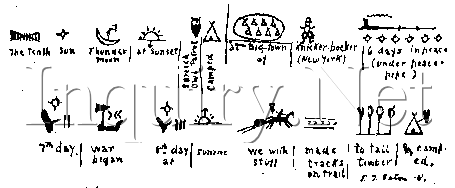 The Tenth Sun Thunder moon | at sunset | Banded Owl Patrol | camped | at Big-town of | Knicker-bocker (NEW YORK) | 6 days in peace (under peace-pipe)
Inquiry.Net
7th day. | war began | 8th day at | sunrise | we with stuff | made tracks on trail | To tall timber | & camped.